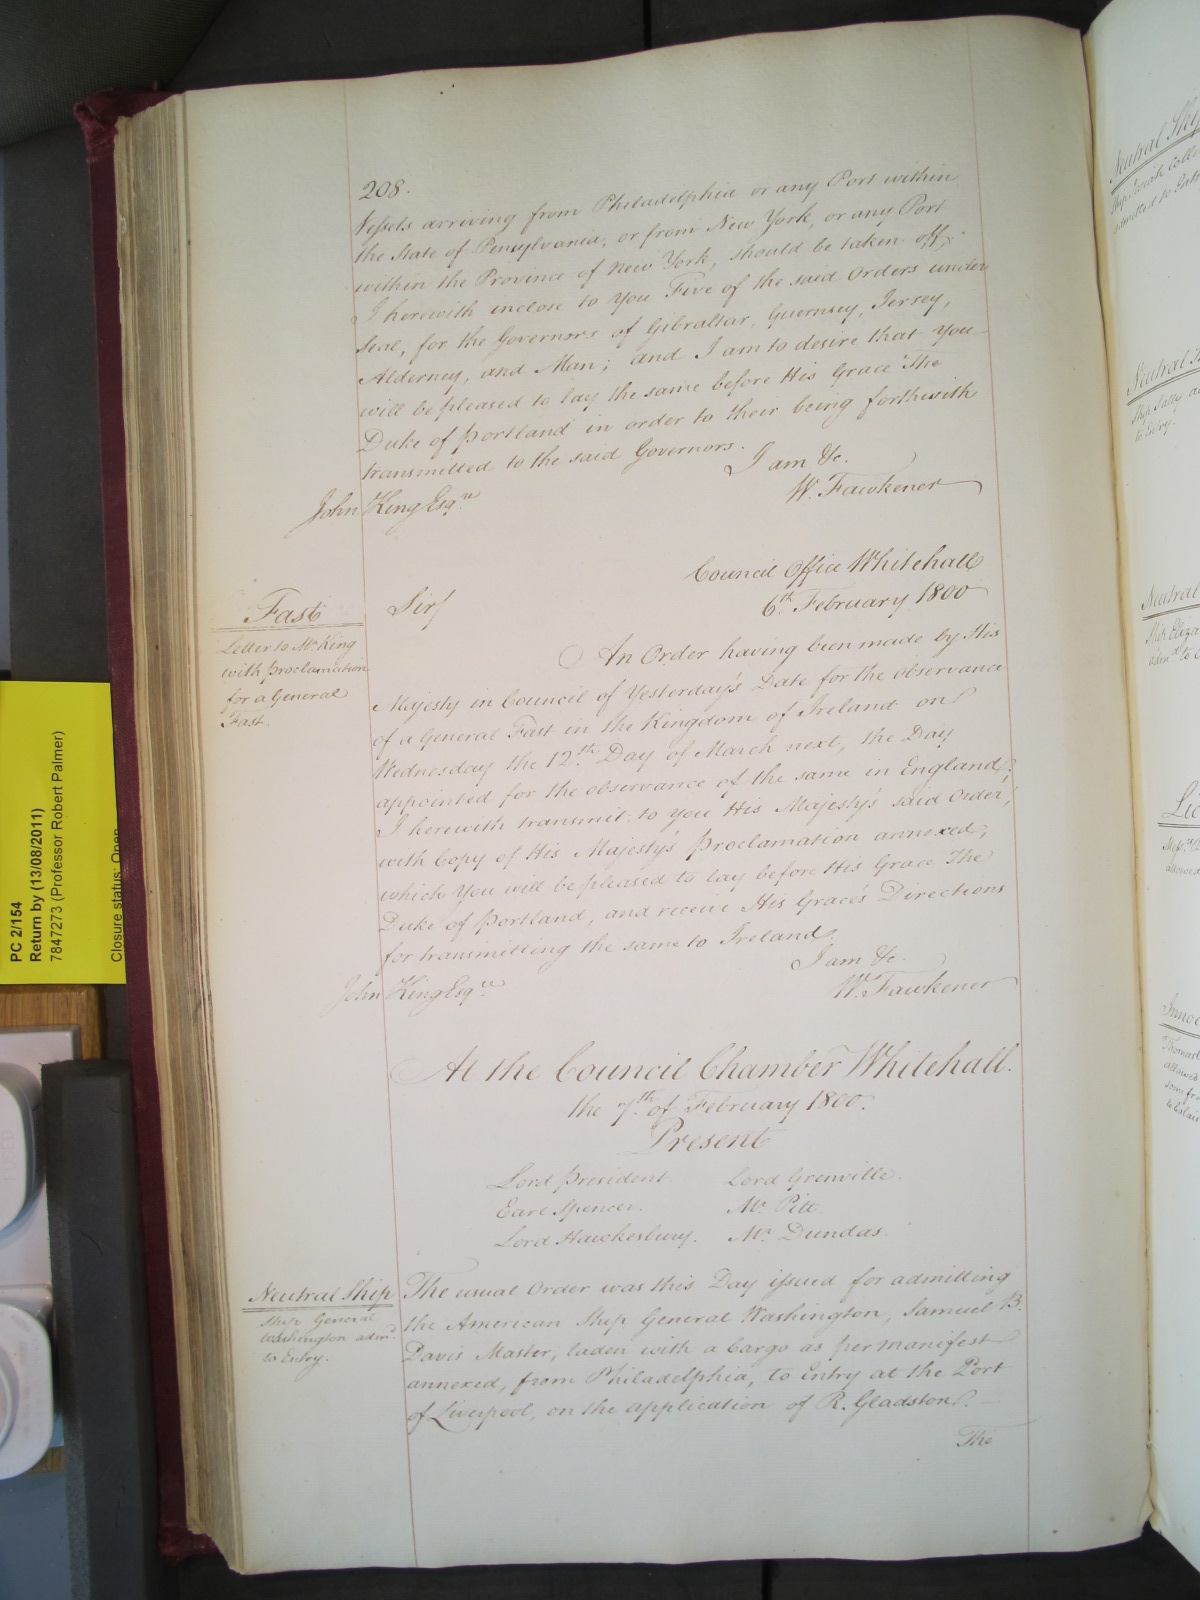 208.
Vessels arriving from Philadelphia or any Port within
the State of Pensylvania, or from New York, or any Port
within the Province of New York, should be taken off;
I herewith inclose to you Five of the said Orders under
Seal, for the Governors of Gibraltar, Guernsey, Jersey,
Alderney, and Man; and I am to desire that You
will be pleased to lay the same before His Grace The
Duke of Portland in order to their being forthwith
transmitted to the said Governors.
I am &c.
W. Fawkener
John King Esqre
Council Office Whitehall
6th February 1800
Fast
Letter to Mr King
with Proclamation
for a General
Fast.
Sir/
An Order having been made by His
Majesty in Council of Yesterday's Date for the observance
of a General Fast in the Kingdom of Ireland on
Wednesday the 12th Day of March next, the Day
appointed for the observance of the same in England;
I herewith transmit to you His Majesty's said Order,
with Copy of His Majesty's Proclamation annexed;
which You will be pleased to lay before His Grace The
Duke of Portland, and receive His Grace's Directions
for transmitting the same to Ireland.
I am &c.
W. Fawkener
John King Esqre
At the Council Chamber Whitehall.
the 7th of February 1800.
Present
Lord President. Lord Grenville.
Earl Spencer. Mr Pitt
Lord Hawkesbury. Mr Dundas.
Neutral Ship
Ship General
Washington admd
to Entry.
The usual Order was this Day issued for admitting
the American Ship General Washington, Samuel B.
Davis Master, laden with a Cargo as per manifest
annexed, from Philadelphia, to Entry at the Port
of Liverpool, on the application of R. Gladston.
The
PC 2/154
Return by (13/08/2011)
7847273 (Professor Robert Palmer)
Closure status: Open
Neutral Ship
admitted to
Neutral
Ship Sally
to Entry.
Neutral
allowed
Thomas
allowed